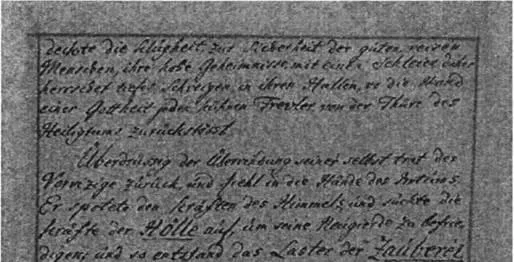 deckte die Klugheit zur Sicherheit der guten reinen
Menschen, ihre hohe Geheimnisse mit einem Schleier daher
herrschet tiefes Schweigen in ihren Hallen, wo die Hand
einer Gottheit jeden kühnen Frevler von der Thüre des
Heiligtums zurückstösst
Überdrüssig der seiner selbst trat der
Vorwizige zurück, und fiehl in die Hände des
Er spotete den Kräften des Himmels und suchte die
Kräfte der Hölle auf, um seine Neugierde zu befrie-
digen; und so entstand das Laster der Zauberei